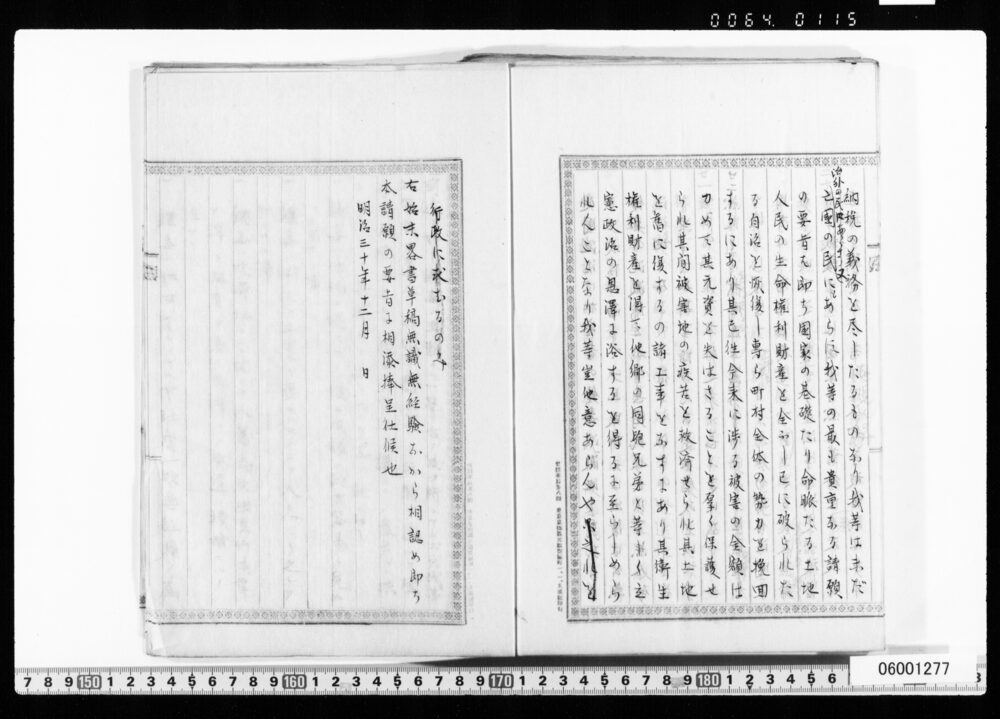 0064. 0115
納税の義務を尽したるものなり我等は未だ
亡国の民にあらず我等の最も貴重なる請願
の要旨は即ち国家の基礎たり命脈たる土地
人民の生命権利財産を全ふし已に破られた
る自治を恢復し専ら町村全体の勢力を挽回
するにあり其已往今来に渉る被害の金額は
力めて其元資を失はさることを厚く保護せ
られ其間被害地の疾苦を救済せられ其土地
を旧に復するの諸工事をなすにあり其衛生
権利財産を得て他郷の同胞兄弟と等しく立
憲政治の恩澤に浴するを得るに至らしめら
れんことなり我等豈他意あらんや
行政に求むるのみ
右始末畧書草稿無識無経験なから相認め即ち
本請願の要旨に相添捧呈仕候也
明治三十年十二月 日
7 8 9 150 1 2 3 4 5 6 7 8 9 160 1 2 3 4 5 6 7 8 9 170 1 2 3 4 5 6 7 8 9 180 1 2 3 4 5 6
06001277